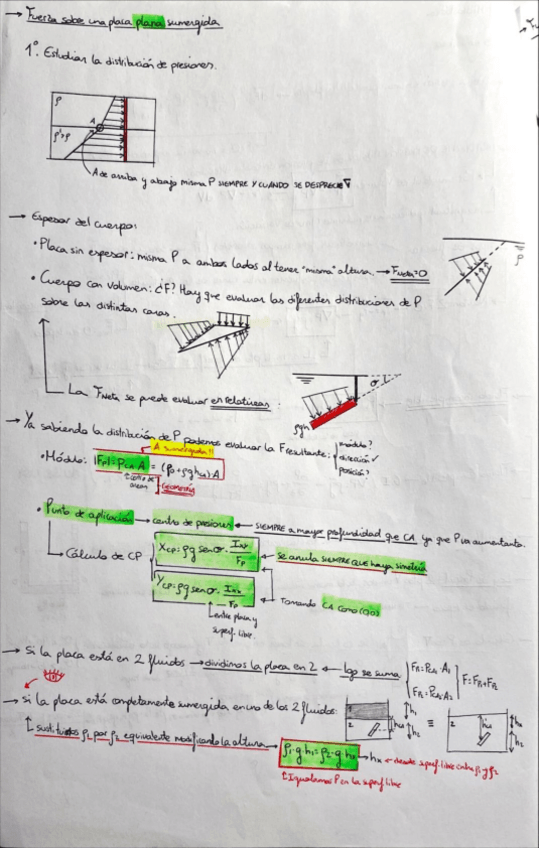 → Fuerza sobre una placa plana sumergida
1º. Estudian la distribución de presiones.
ρ
A
ρ'>ρ
A de arriba y abajo misma P SIEMPRE Y CUANDO SE DESPRECIE ∇
→ Espesor del cuerpo:
• Placa sin espesor: misma P a ambos lados al tener "misma" altura. → FNETA=0
ρ
• Cuerpo con volumen: ¿F? Hay que evaluar las diferentes distribuciones de P
sobre las distintas caras.
La FNeta se puede evaluar en relativas:
σ
ρgh
→ Ya sabiendo la distribución de P podemos evaluar la Fresultante:
módulo?
dirección ✓
posición?
A sumergida!!
• Módulo: |Fp| = PCA·A = (P0+ρghCA)·A
centro de áreas
Geometría
• Punto de aplicación → centro de presiones ← SIEMPRE a mayor profundidad que CA ya que P va aumentanto.
Cálculo de CP
XCP=ρg senσ · Ixy/Fp ← se anula SIEMPRE QUE haya simetría
YCP=ρg senσ · Ixx/Fp
Tomando CA como (0,0)
entre placa y superf. libre.
→ Si la placa está en 2 fluidos → dividimos la placa en 2 ← lgo se suma
FP1=PCA1·A1
FP2=PCA2·A2
F=FP1+FP2
→ Si la placa está completamente sumergida en uno de los 2 fluidos:
1
2
h1
hCA
h2
≡
2
hCA
hx
h2
sustituimos ρ1 por ρ2 equivalente modificando la altura → ρ1·g·h1=ρ2·g·hx → hx ← desde superf. libre entre ρ1 y ρ2
Igualamos P en la superf libre